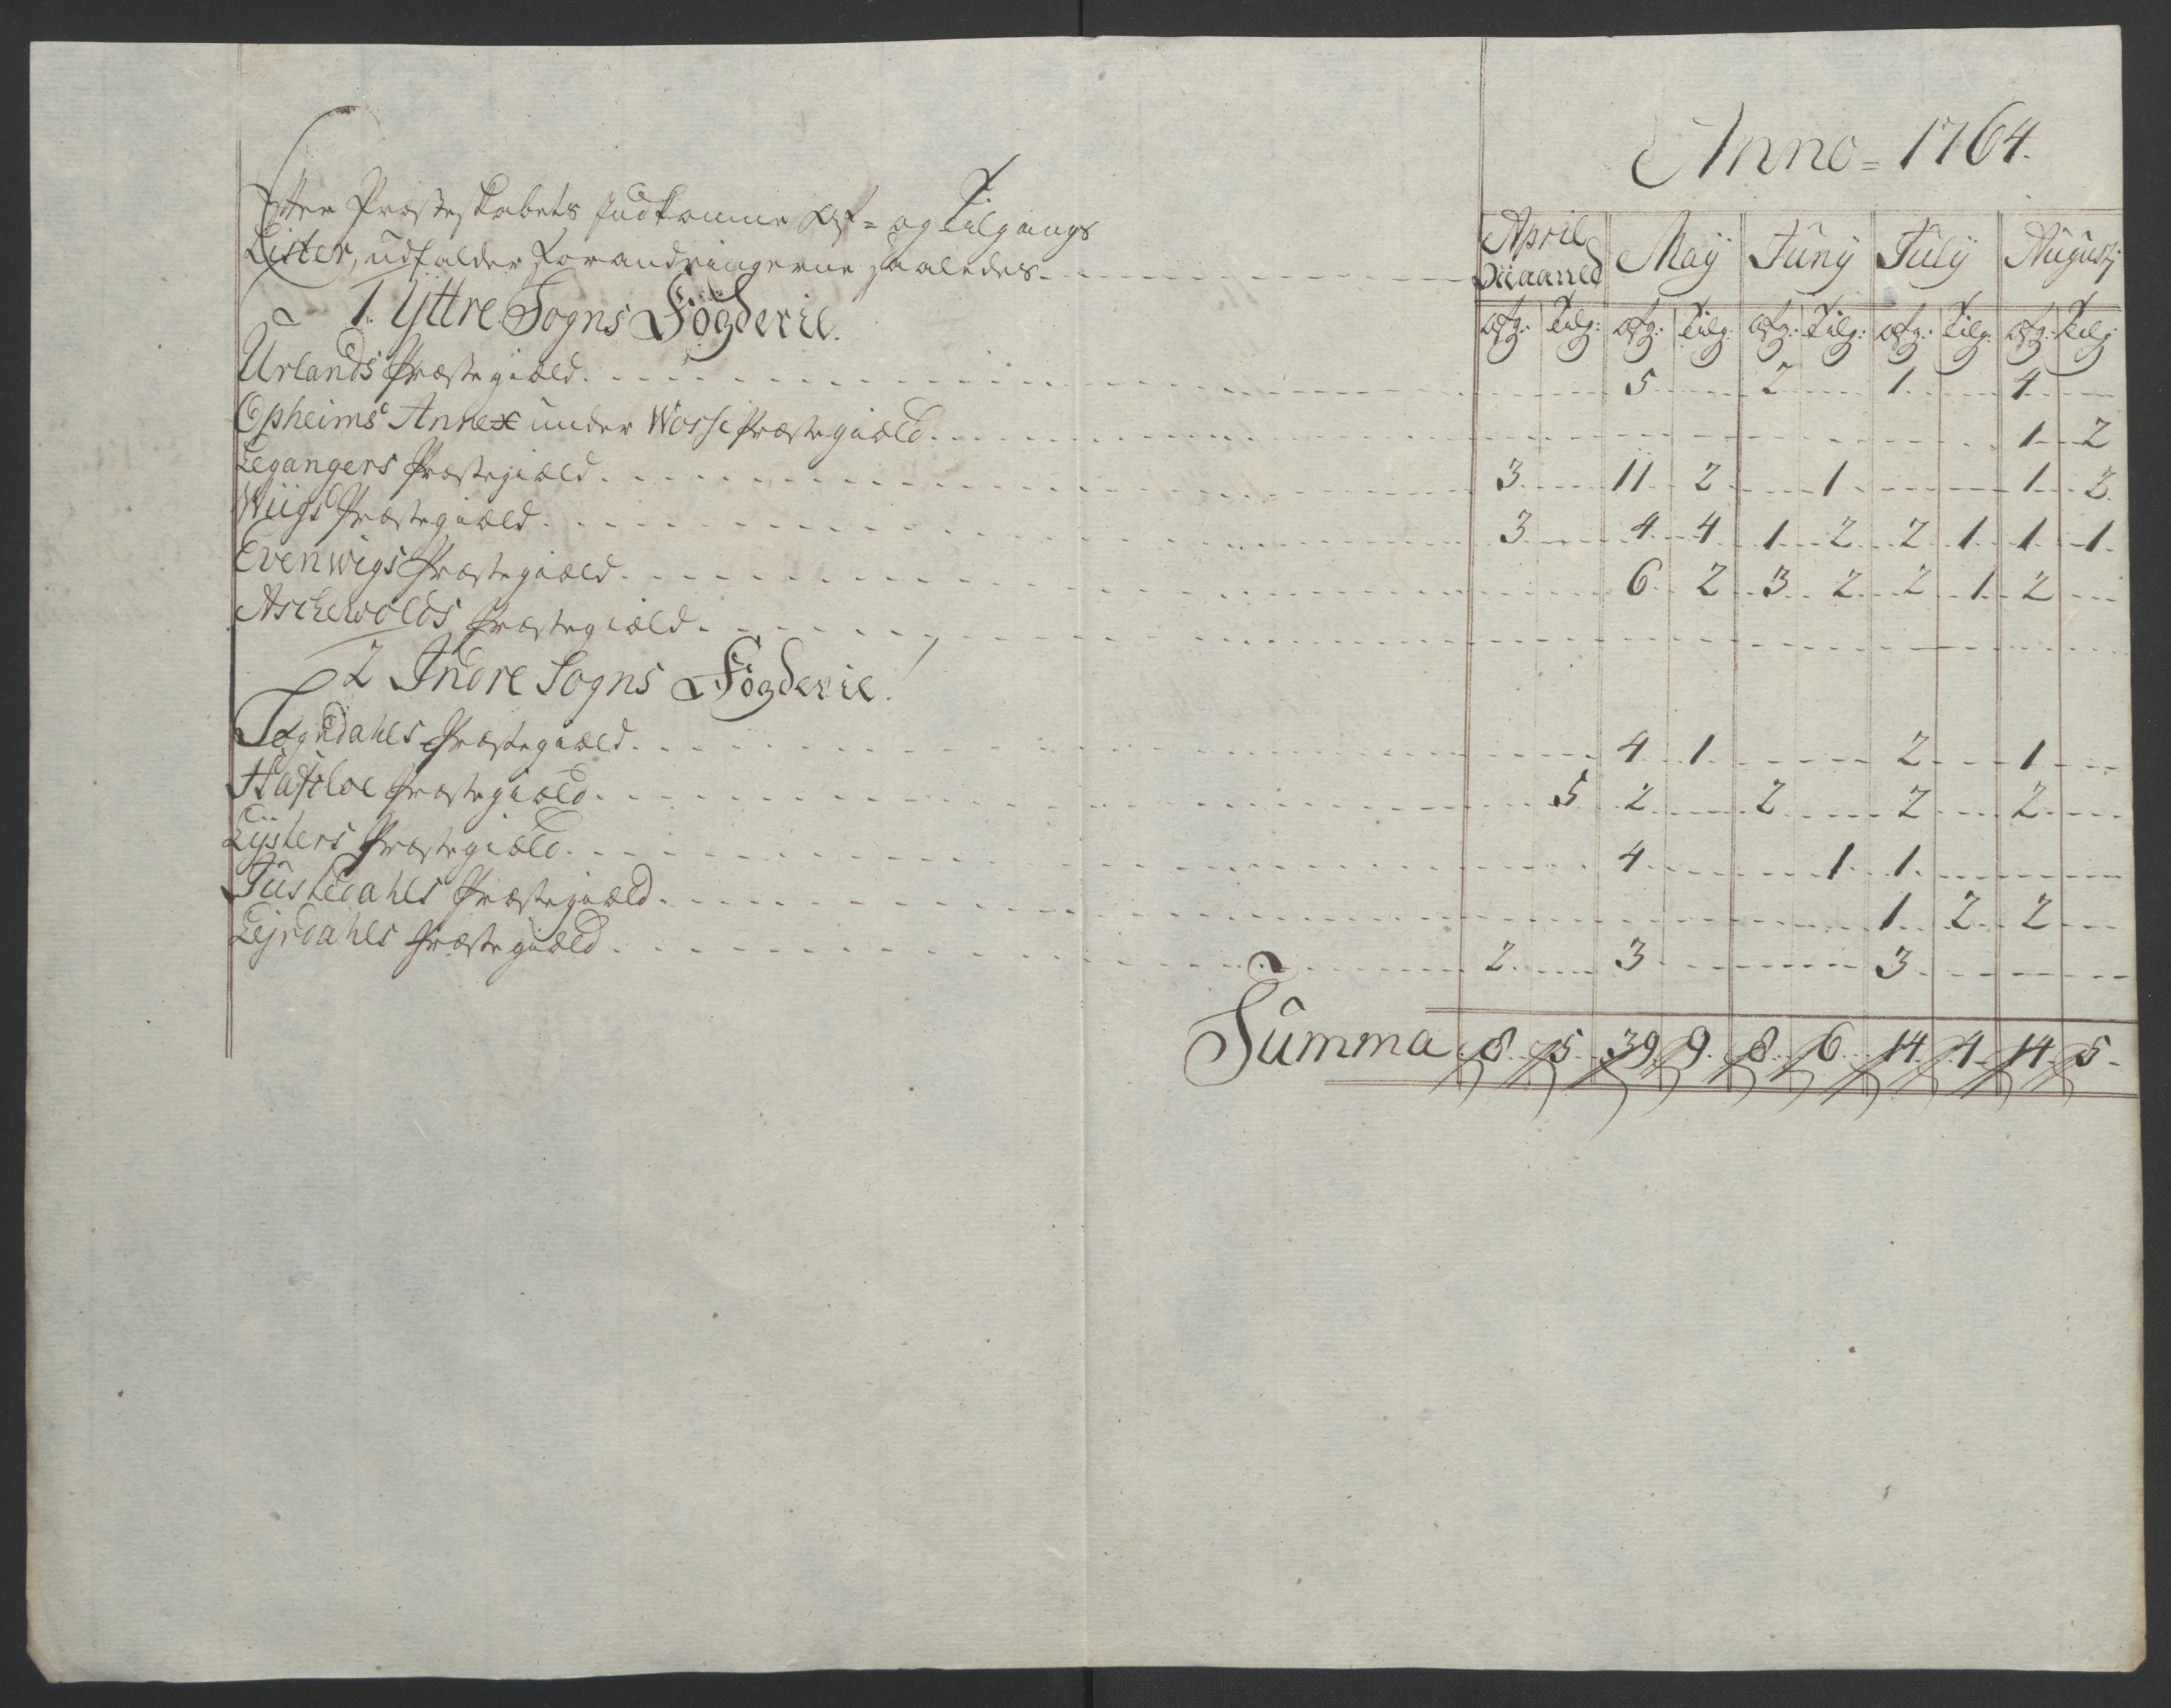 Anno = 1764.
Efter Præsteskabets Indkomne Af= og Tilgangs
Lister, udfalder Forandringerne saaledes.
April Maaned May Juny July Augusty
Afg: Tilg: Afg: Tilg: Afg: Tilg: Afg: Tilg: Afg: Tilg
1. Yttre Sogns Fögderie.
Urlands Præstegiæld. 5 2 1 4
Opheims Annex under Wosse Præstegiæld. 1 2
Legangers Præstegiæld. 3 11 2 1 1 2.
Wiigs Præstegiæld. 3 4 4 1 2 2 1 1 1.
Evenwigs Præstegiæld. 6 2 3 2 2 1 2
Aschewolds Præstegiæld.
2 Indre Sogns Fögderie.
Sogndahls Præstegiæld. 4 1 2 1
Hafsloe Præstegiæld. 5 2 2 2 2
Lysters Præstegiæld. 4 1 1
Justedahls Præstegiæld. 1 2 2
Lejrdahls Præstegiæld. 2 3 3
Summa 8 5 39 9 8 6 14 4 14 5